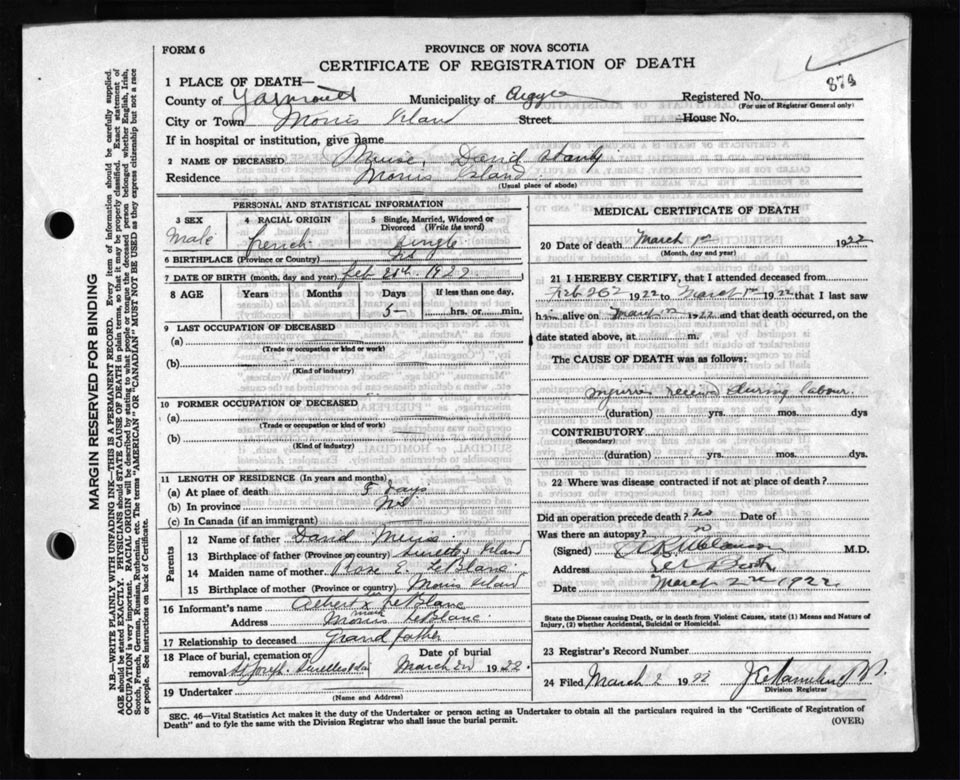 FORM 6
PROVINCE OF NOVA SCOTIA
CERTIFICATE OF REGISTRATION OF DEATH
874
1 PLACE OF DEATH—
County of Yarmouth Municipality of Argyle Registered No.
(For use of Registrar General only)
City or Town Morris Island Street House No.
If in hospital or institution, give name
2 NAME OF DECEASED Muise, David Stanly
Residence Morris Island
(Usual place of abode)
PERSONAL AND STATISTICAL INFORMATION
3 SEX
male
4 RACIAL ORIGIN
french
5 Single, Married, Widowed or Divorced (Write the word)
Single
6 BIRTHPLACE (Province or Country) NS
7 DATE OF BIRTH (month, day and year) feb 1922
8 AGE Years Months Days If less than one day,
5 hrs. or min.
9 LAST OCCUPATION OF DECEASED
(a)
(Trade or occupation or kind of work)
(b)
(Kind of industry)
10 FORMER OCCUPATION OF DECEASED
(a)
(Trade or occupation or kind of work)
(b)
(Kind of industry)
11 LENGTH OF RESIDENCE (In years and months)
(a) At place of death 5 days
(b) In province NS
(c) In Canada (if an immigrant)
Parents
12 Name of father David
13 Birthplace of father (Province or country) Surettes Island
14 Maiden name of mother Rose E. LeBlanc
15 Birthplace of mother (Province or country) Morris Island
16 Informant's name Albert his x mark LeBlanc
Address Morris
17 Relationship to deceased Grand father
18 Place of burial, cremation or removal St Joseph Date of burial March 2nd 1922
19 Undertaker
(Name and Address)
MEDICAL CERTIFICATE OF DEATH
20 Date of death March 1st 1922
(Month, day and year)
21 I HEREBY CERTIFY, that I attended deceased from
Feb 1922 to March 1st 1922 that I last saw
him alive on March 1922 and that death occurred, on the
date stated above, at m.
The CAUSE OF DEATH was as follows:
injuries received during labour
(duration) yrs. mos. dys
CONTRIBUTORY
(Secondary)
(duration) yrs. mos. dys.
22 Where was disease contracted if not at place of death?
Did an operation precede death? No Date of
Was there an autopsy? no
(Signed) M.D.
Address
Date March 2nd 1922
State the Disease causing Death, or in death from Violent Causes, state (1) Means and Nature of Injury, (2) whether Accidental, Suicidal or Homicidal.
23 Registrar's Record Number
24 Filed March 2 1922
Division Registrar
SEC. 46—Vital Statistics Act makes it the duty of the Undertaker or person acting as Undertaker to obtain all the particulars required in the "Certificate of Registration of
Death" and to fyle the same with the Division Registrar who shall issue the burial permit. (OVER)
MARGIN RESERVED FOR BINDING
N.B.—WRITE PLAINLY WITH UNFADING INK—THIS IS A PERMANENT RECORD. Every item of information should be carefully supplied.
AGE should be stated EXACTLY. PHYSICIANS should STATE CAUSE OF DEATH in plain terms, so that it may be properly classified. Exact statement of
OCCUPATION is very important. RACIAL ORIGIN will be described by stating to what people or tongue the deceased person belonged whether English, Irish,
Scotch, French, German, Russian, Ruthenian, etc. The terms "AMERICAN" or "CANADIAN" MUST NOT BE USED as they express citizenship but not a race
or people. See instructions on back of Certificate.